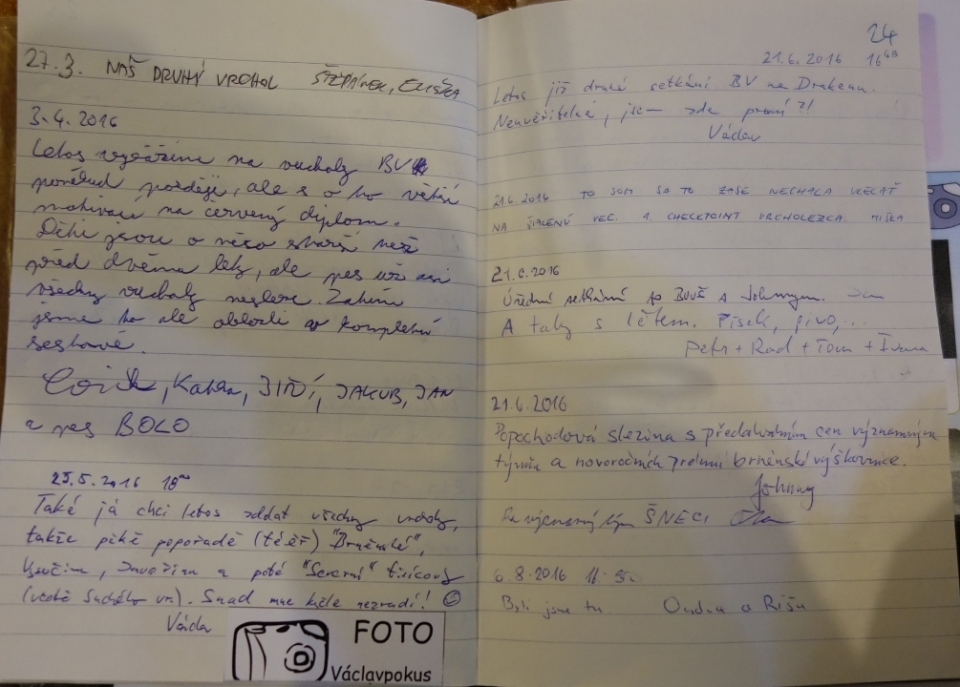 27.3. NAŠ DRUHÝ VRCHOL ŠTĚPÁNEK, ELIŠKA
3.4. 2016
Letos vyrážíme na vrcholy BV
poněkud později, ale s o to větší
motivací na červený diplom.
Děti jsou o něco starší než
před dvěma lety, ale pes už asi
všechny vrcholy nesleze. Zatím
jsme to ale obložili v kompletní
sestavě.
, Katka, JIŘÍ, JAKUB, JAN
a pes BOLO
25.5.2016 18
Také já chci letos zdolat všechny vrcholy,
takže pěkně popořadě (téměř) "Brněnské",
a poté "Severní" tisícovky
(vedle Suchého vr.). Snad mne kolo nezradí! ☺
Vác
FOTO
Václavpokus
24
21.6.2016 16
Letos již druhé setkání BV na Drakenu.
Neuvěřitelné, zde první ?!
Václav
21.6.2016 TO SOM SA TO ZASE NECHALA
NA ŠIALENÚ VEC. 1. CHECKPOINT VRCHOLEZCA. MIŠKA
21.6.2016
Úřední setkání po s Johnnym.
A taky s létem. Písek, pivo, ...
Petr + Rad + Tom + Ivana
21.6.2016
Popochodová slezina s předáváním cen významným
týmům a novoročních prémií brněnské výškovnice.
Johnny
Za významný tým ŠNECI
6.8.2016
Byli jsme tu Ondra a Ríša